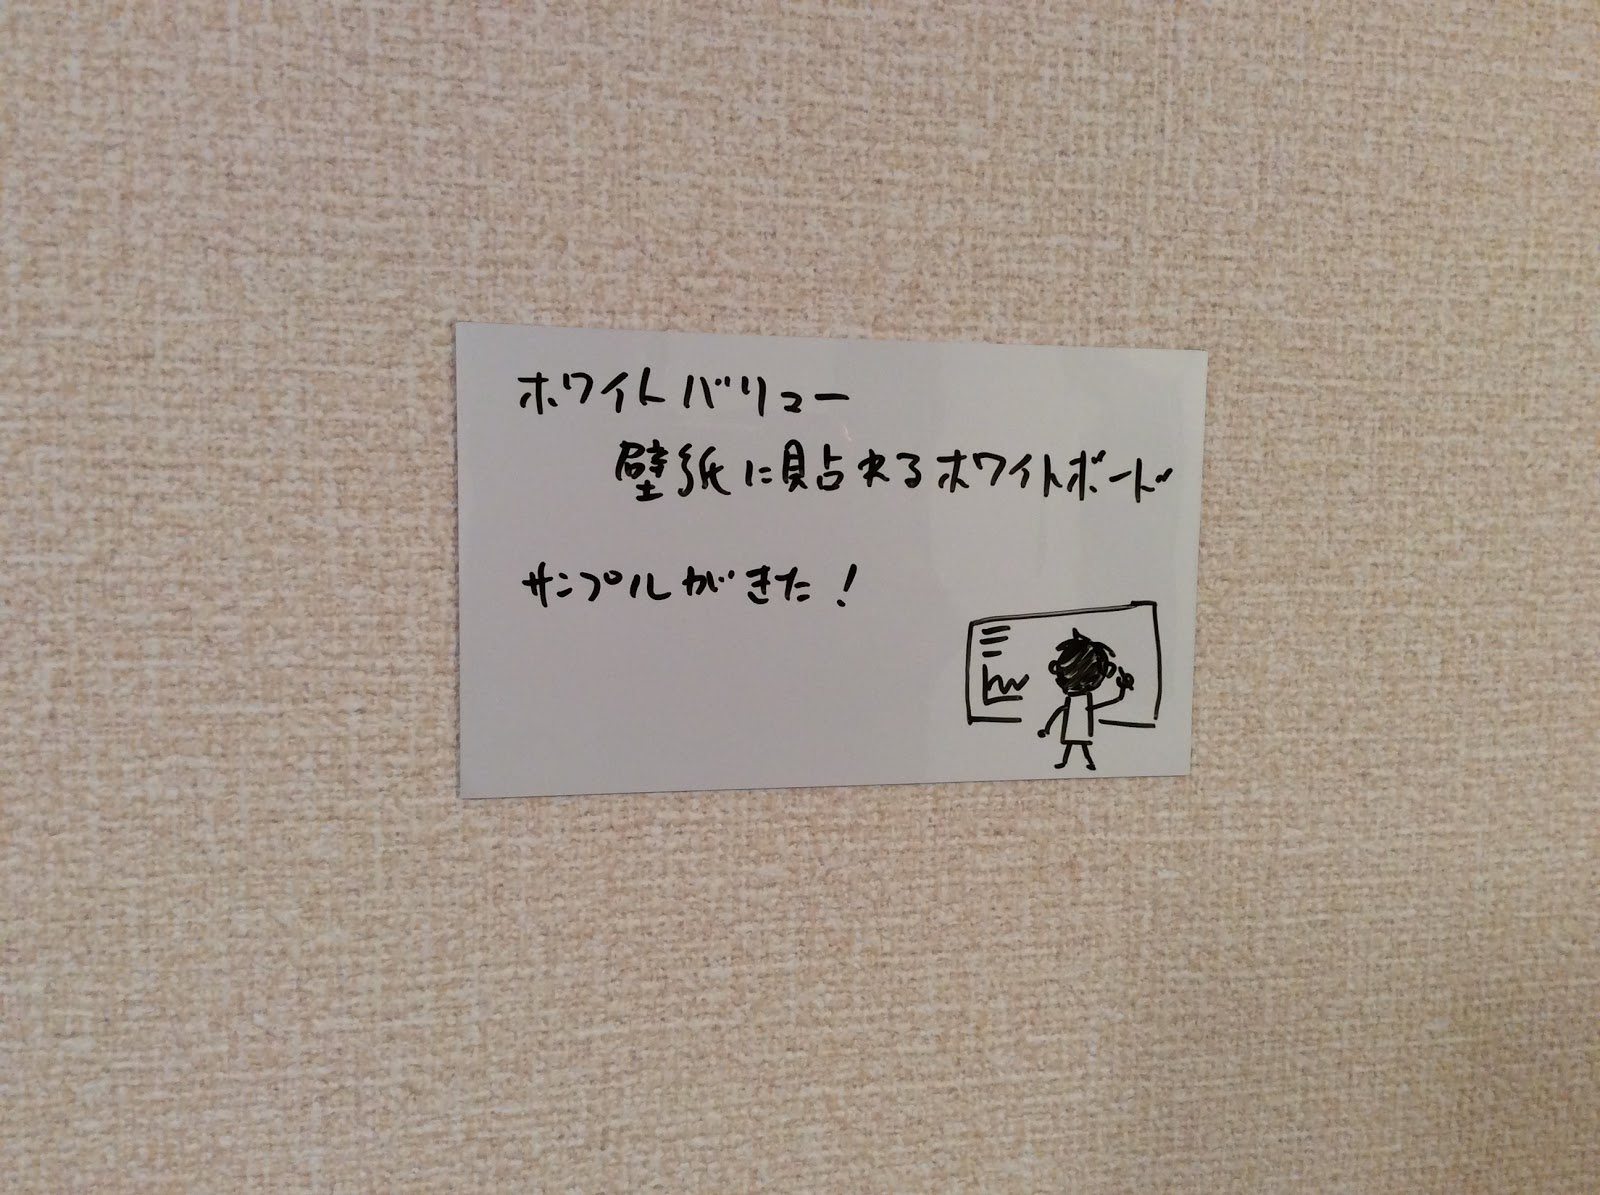 ホワイトバリュー
壁紙に貼れるホワイトボード
サンプルがきた!